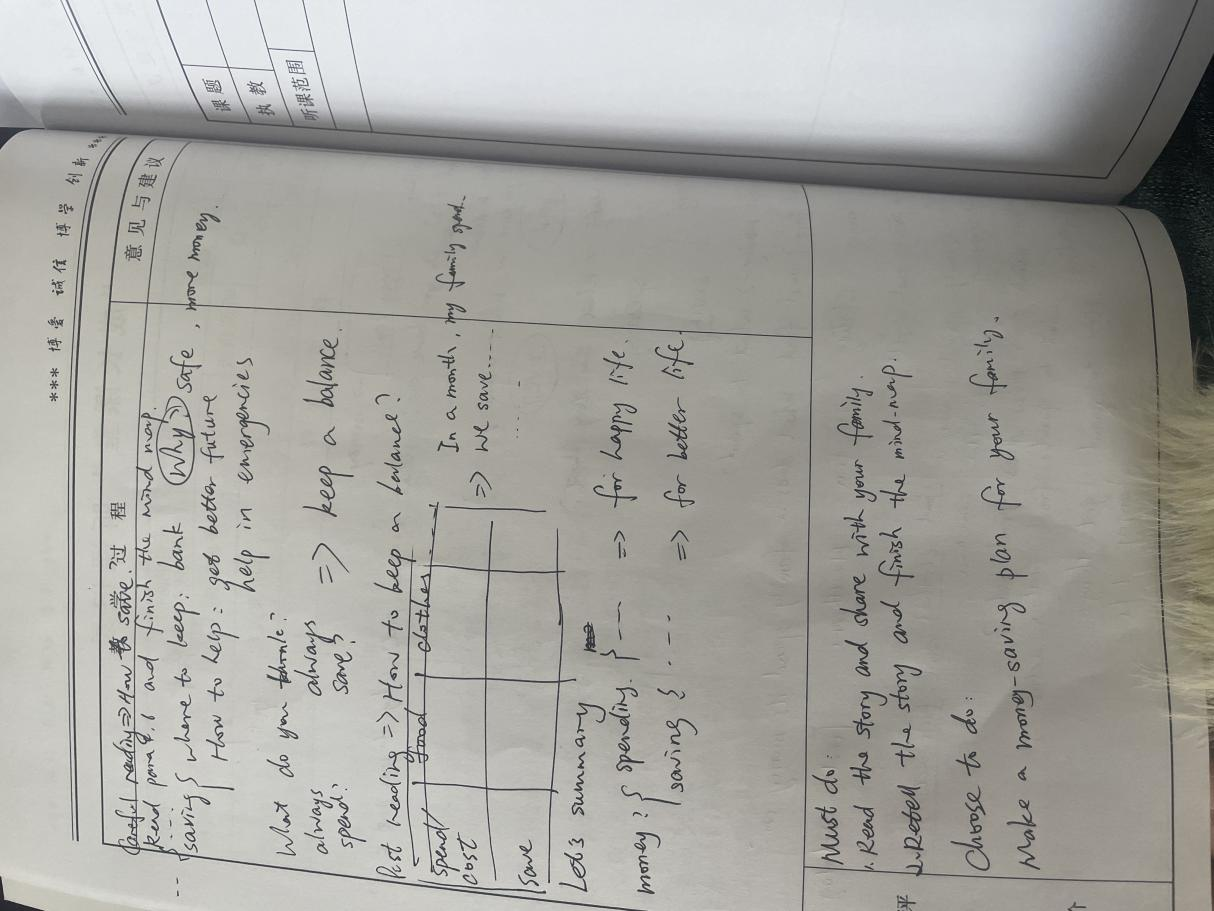 *** 博爱 诚信 博学 创新 ***
教 学 过 程
意见与建议
Careful reading => How to save?
Read para 4, 1 and finish the mind map.
saving { where to keep: bank Why => safe, more money.
How to help: get better future
help in emergencies
What do you think?
always spend? always save? => keep a balance.
Post reading => How to keep a balance?
Spend/cost food clothes ......
Save
=> In a month, my family spend..
We save......
......
Let's summary
money: { spending. } --- => for happy life.
saving } --- => for better life.
Must do:
1. Read the story and share with your family.
2. Retell the story and finish the mind-map.
Choose to do:
Make a money-saving plan for your family.
评
课 题
执 教
听课范围